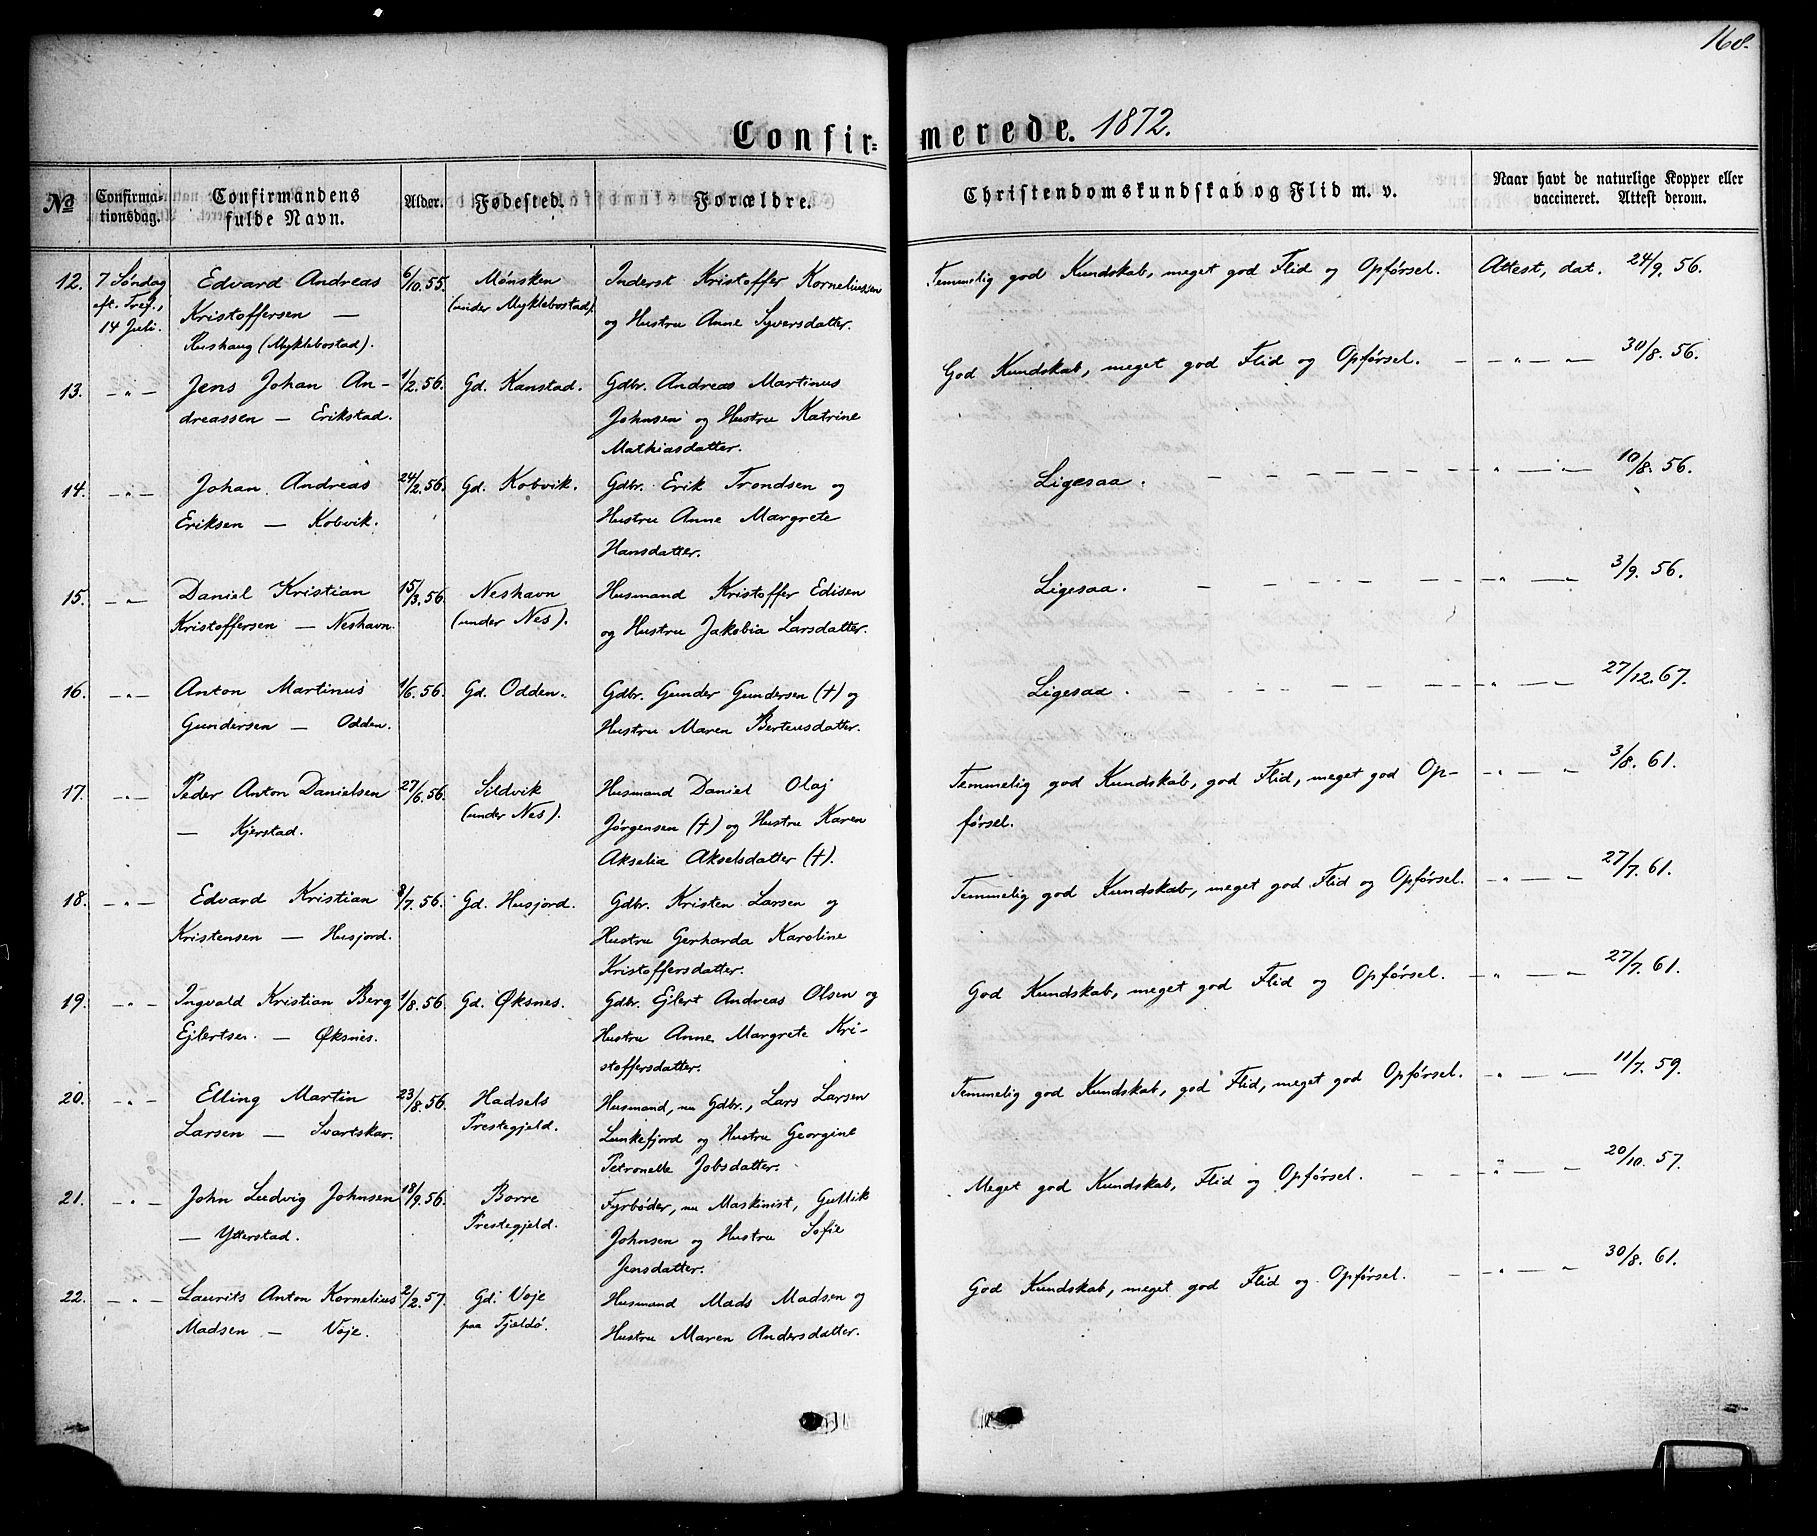 168.
Confir= merede. 1872.
№ Confirma-tionsdag. Confirmandens fulde Navn. Alder. Fødested. Forældre. Christendomskundskab og Flid m. v. Naar havt de naturlige Kopper eller vaccineret. Attest derom.
12. 7 Søndag Edvard Andreas 6/10.55. Mønsken Inderst Kristoffer Korneliussen Temmelig god Kundskab, meget god Flid og Opførsel. Attest, dat. 24/9. 56.
eft. Tref., Kristoffersen — (under Myklebostad). og Hustru Anne Syversdatter.
14 Juli. Rushaug (Myklebostad).
13. — " — Jens Johan An- 1/2.56. Gd. Kanstad. Gdbr. Andreas Martinus God Kundskab, meget god Flid og Opførsel. — — " — 30/8. 56.
dreassen — Erikstad. Johnsen og Hustru Katrine
Mathiasdatter.
14. — " — Johan Andreas 24/2.56. Gd. Kobvik. Gdbr. Erik Trondsen og Ligesaa. — — " — 10/8. 56.
Eriksen — Kobvik. Hustru Anne Margrete
Hansdatter.
15. — " — Daniel Kristian 15/3.56. Neshavn Husmand Kristoffer Edisen Ligesaa. — — " — 3/9. 56.
Kristoffersen — Neshavn. (under Nes). og Hustru Jakobia Larsdatter.
16. — " — Anton Martinus 1/6.56. Gd. Odden. Gdbr. Gunder Gundersen (†) og Ligesaa. — — " — 27/12. 67.
Gundersen — Odden. Hustru Maren Berteusdatter.
17. — " — Peder Anton Danielsen 27/6.56. Sildvik Husmand Daniel Olaj Temmelig god Kundskab, god Flid, meget god Op- — " — 3/8. 61.
— Kjerstad. (under Nes). Jørgensen (†) og Hustru Karen førsel.
Akselia Akselsdatter (†).
18. — " — Edvard Kristian 8/7.56. Gd. Husjord. Gdbr. Kristen Larsen og Temmelig god Kundskab, meget god Flid og Opførsel. — " — 27/7. 61.
Kristensen — Husjord. Hustru Gerharda Karoline
Kristoffersdatter.
19. — " — Ingvald Kristian Berg 1/8.56. Gd. Øksnes. Gdbr. Ejlert Andreas Olsen og God Kundskab, meget god Flid og Opførsel. — " — 27/7. 61.
Ejlertsen. — Øksnes. Hustru Anne Margrete Kri-
stoffersdatter.
20. — " — Elling Martin 23/8.56. Hadsels Husmand, nu Gdbr., Lars Larsen Temmelig god Kundskab, god Flid, meget god Opførsel. — " — 11/7. 59.
Larsen — Svartskar. Prestegjeld. Lunkefjord og Hustru Georgine
Petronelle Jobsdatter.
21. — " — John Ludvig Johnsen 18/9.56. Borre Fyrbøder, nu Maskinist, Gullik Meget god Kundskab, Flid og Opførsel. — — " — 20/10. 57.
— Ytterstad. Prestegjeld. Johnsen og Hustru Sofie
Jensdatter.
22. — " — Laurits Anton Kornelius 2/2.57. Gd. Voje Husmand Mads Madsen og God Kundskab, meget god Flid og Opførsel. — — " — 30/8. 61.
Madsen — Voje. paa Tjældø. Hustru Maren Andersdatter.